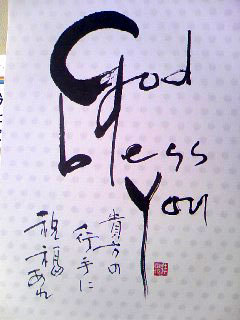 God
bless
You
貴方の
行手に
祝福あれ